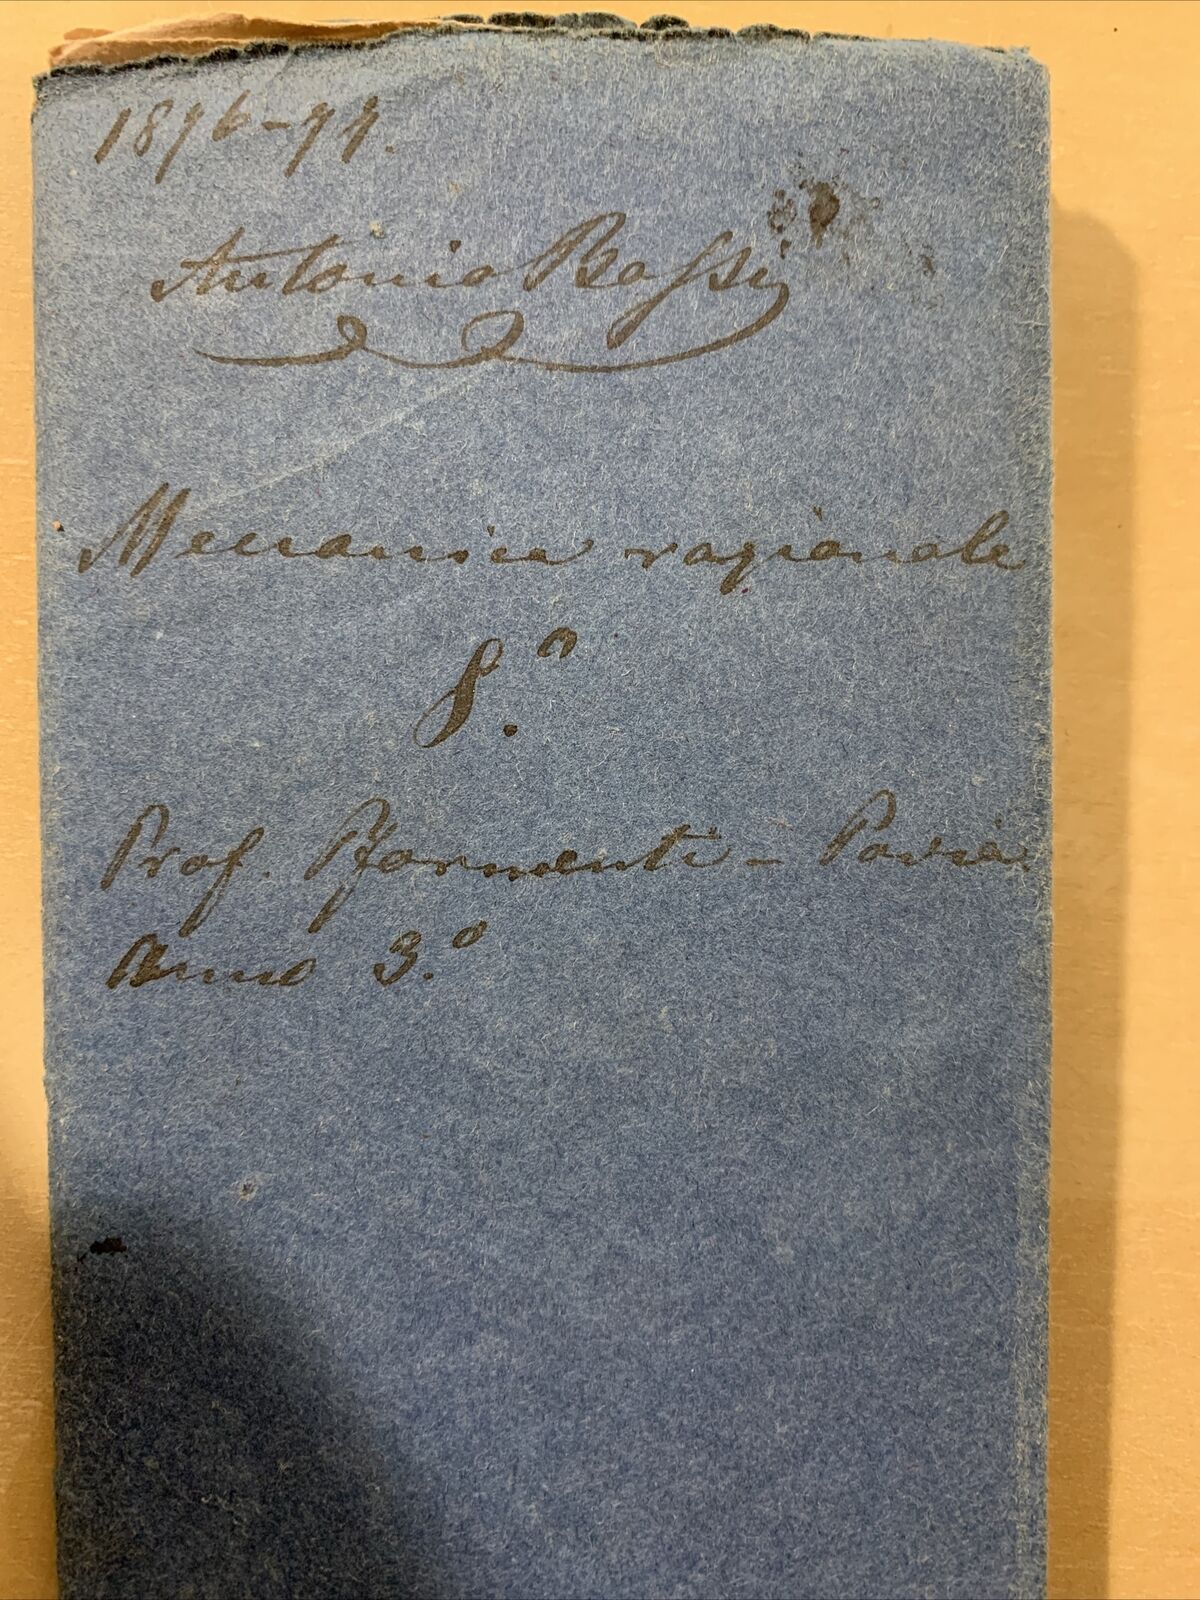 1896-97.
Antonio Bassi
Meccanica razionale
8.°
Prof. Formenti - Pavia.
Anno 3.°